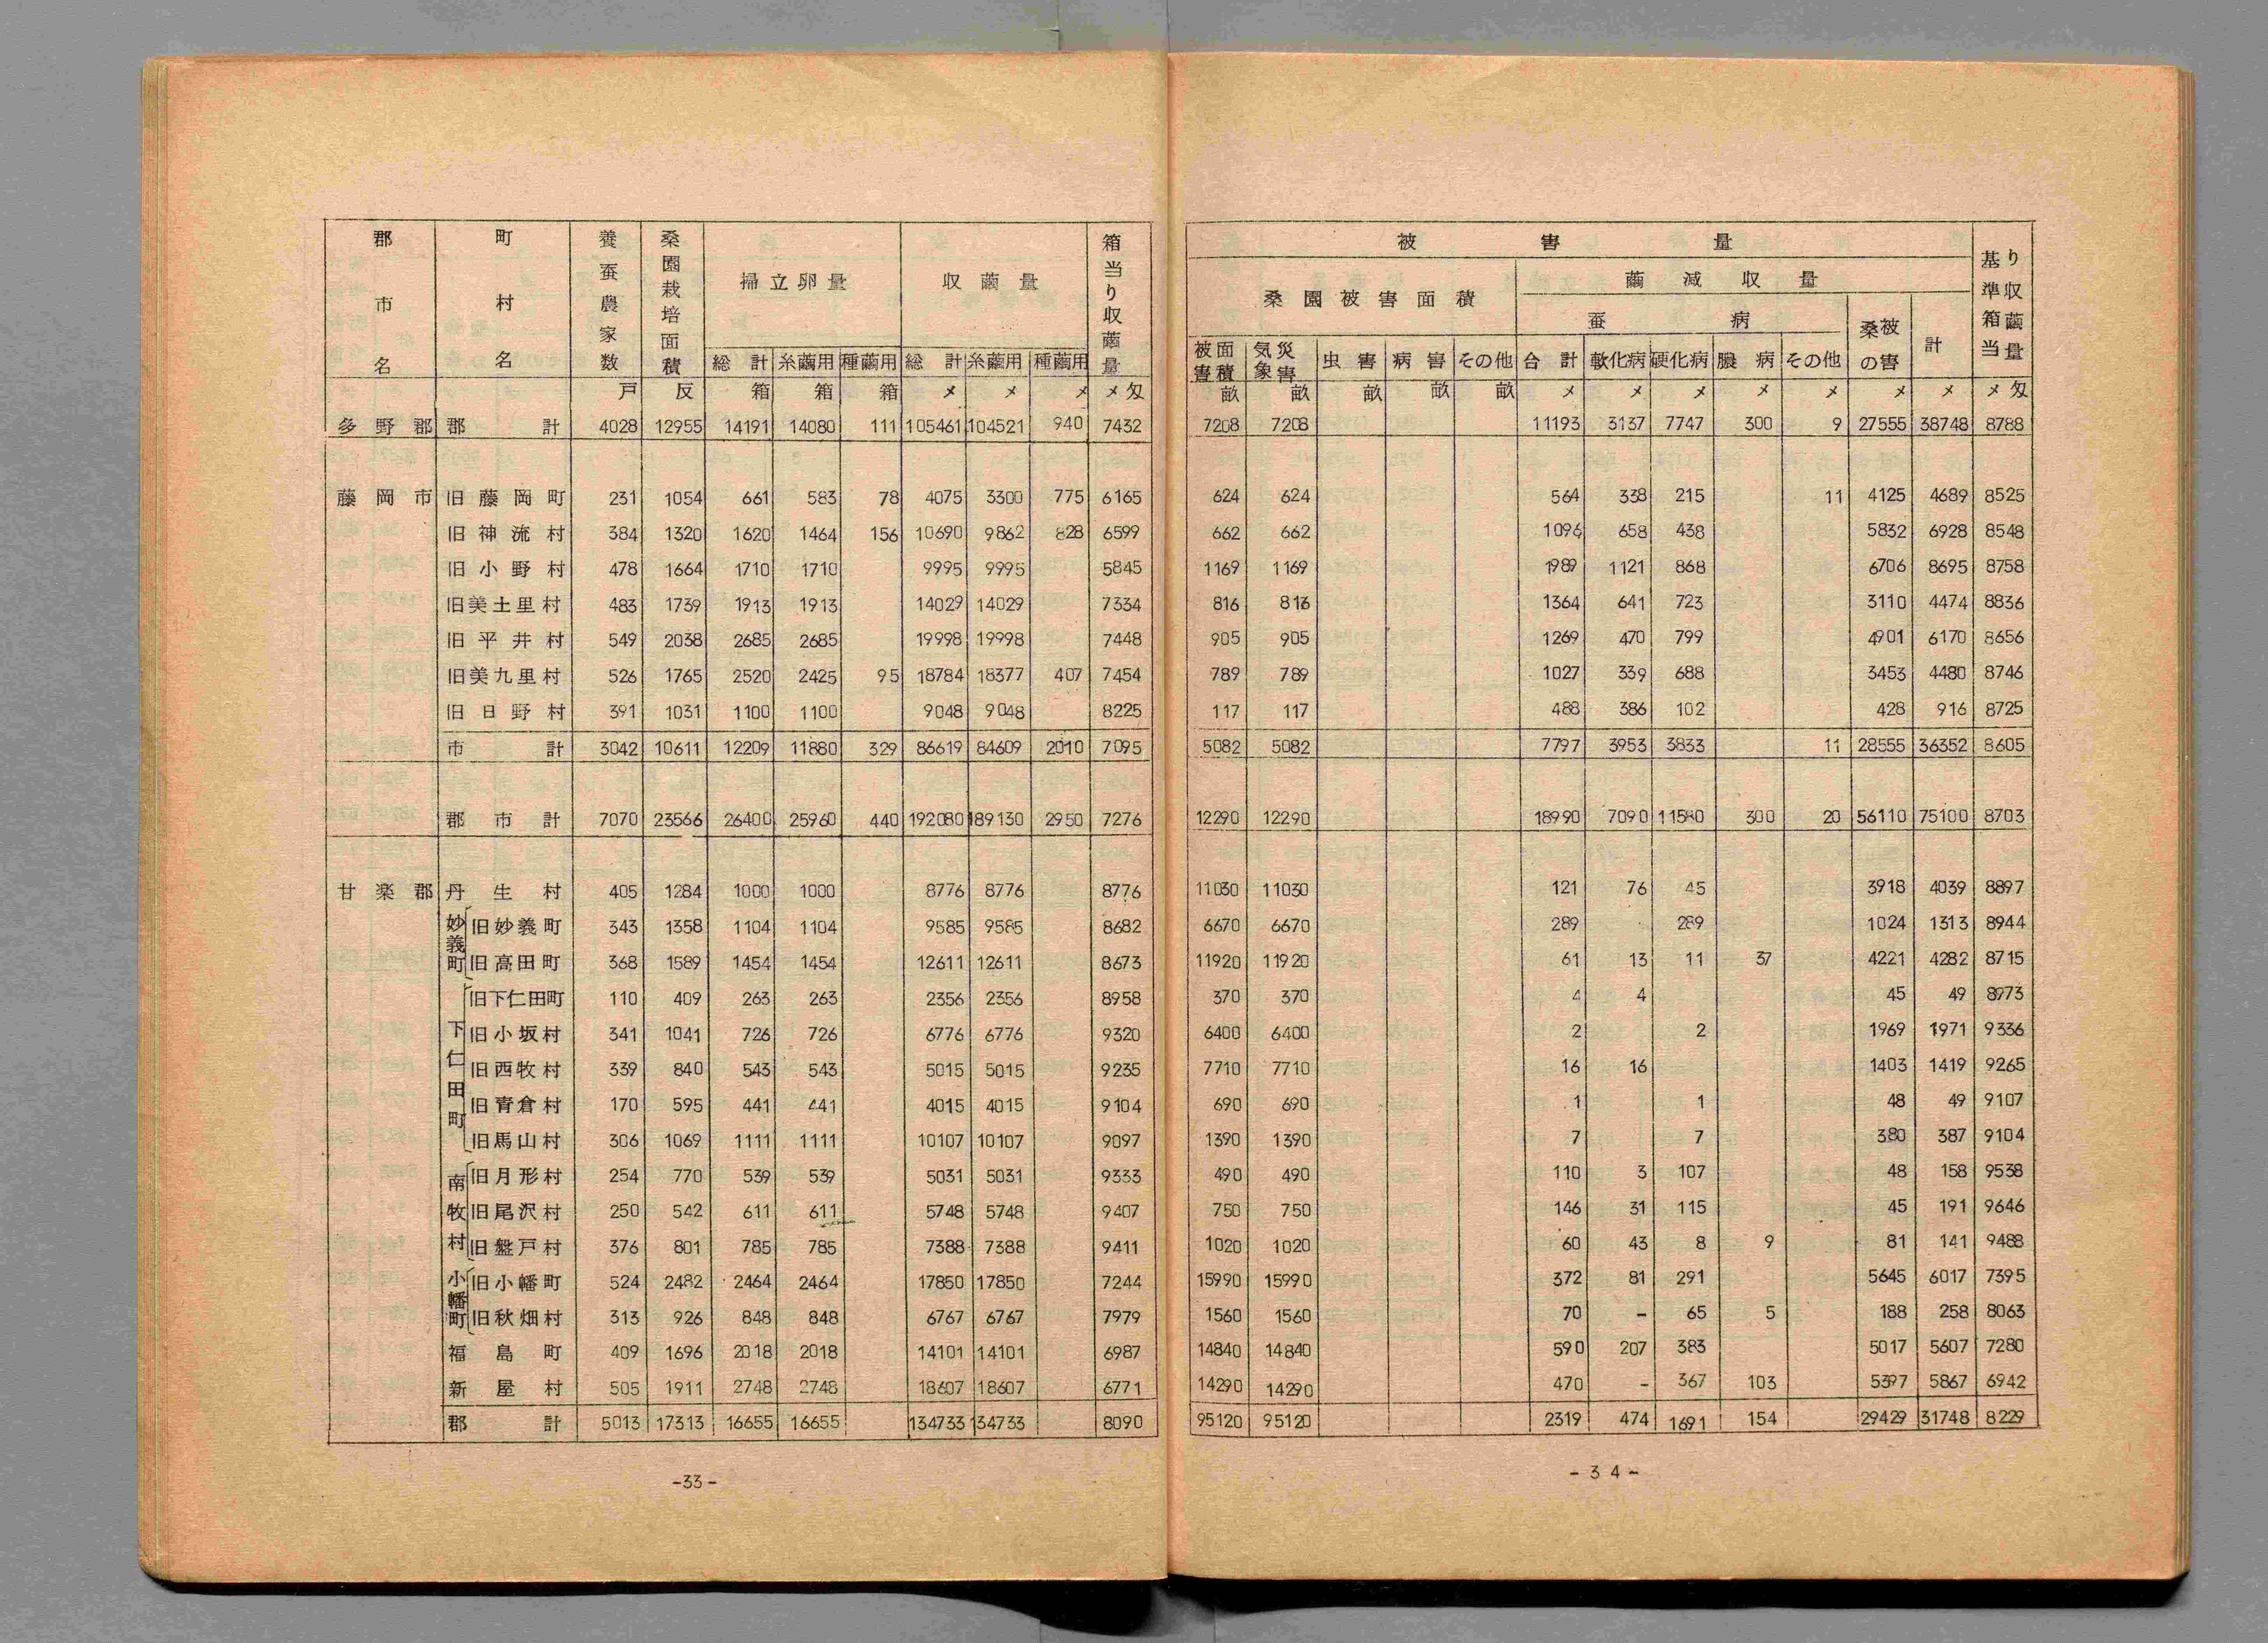 郡市名 町村名 養蚕農家数 桑園栽培面積 掃立卵量 収繭量 箱当り収繭量
総計 糸繭用 種繭用 総計 糸繭用 種繭用
戸 反 箱 箱 箱 メ メ メ メ匁
多野郡 郡計 4028 12955 14191 14080 111 105461 104521 940 7432
藤岡市 旧藤岡町 231 1054 661 583 78 4075 3300 775 6165
旧神流村 384 1320 1620 1464 156 10690 9862 828 6599
旧小野村 478 1664 1710 1710 9995 9995 5845
旧美土里村 483 1739 1913 1913 14029 14029 7334
旧平井村 549 2038 2685 2685 19998 19998 7448
旧美九里村 526 1765 2520 2425 95 18784 18377 407 7454
旧日野村 391 1031 1100 1100 9048 9048 8225
市計 3042 10611 12209 11880 329 86619 84609 2010 7095
郡市計 7070 23566 26400 25960 440 192080 189130 2950 7276
甘楽郡 丹生村 405 1284 1000 1000 8776 8776 8776
妙義町 旧妙義町 343 1358 1104 1104 9585 9585 8682
旧高田町 368 1589 1454 1454 12611 12611 8673
下仁田町 旧下仁田町 110 409 263 263 2356 2356 8958
旧小坂村 341 1041 726 726 6776 6776 9320
旧西牧村 339 840 543 543 5015 5015 9235
旧青倉村 170 595 441 441 4015 4015 9104
旧馬山村 306 1069 1111 1111 10107 10107 9097
南牧村 旧月形村 254 770 539 539 5031 5031 9333
旧尾沢村 250 542 611 611 5748 5748 9407
旧盤戸村 376 801 785 785 7388 7388 9411
小幡町 旧小幡町 524 2482 2464 2464 17850 17850 7244
旧秋畑村 313 926 848 848 6767 6767 7979
福島町 409 1696 2018 2018 14101 14101 6987
新屋村 505 1911 2748 2748 18607 18607 6771
郡計 5013 17313 16655 16655 134733 134733 8090
-33-
被害量 基準箱当り収繭量
桑園被害面積 繭減収量
蚕病 桑の被害 計
被害面積 気象災害 虫害 病害 その他 合計 軟化病 硬化病 膿病 その他
畝 畝 畝 畝 畝 メ メ メ メ メ メ メ メ匁
7208 7208 11193 3137 7747 300 9 27555 38748 8788
624 624 564 338 215 11 4125 4689 8525
662 662 1096 658 438 5832 6928 8548
1169 1169 1989 1121 868 6706 8695 8758
816 816 1364 641 723 3110 4474 8836
905 905 1269 470 799 4901 6170 8656
789 789 1027 339 688 3453 4480 8746
117 117 488 386 102 428 916 8725
5082 5082 7797 3953 3833 11 28555 36352 8605
12290 12290 18990 7090 11580 300 20 56110 75100 8703
11030 11030 121 76 45 3918 4039 8897
6670 6670 289 289 1024 1313 8944
11920 11920 61 13 11 37 4221 4282 8715
370 370 4 4 45 49 8973
6400 6400 2 2 1969 1971 9336
7710 7710 16 16 1403 1419 9265
690 690 1 1 48 49 9107
1390 1390 7 7 380 387 9104
490 490 110 3 107 48 158 9538
750 750 146 31 115 45 191 9646
1020 1020 60 43 8 9 81 141 9488
15990 15990 372 81 291 5645 6017 7395
1560 1560 70 - 65 5 188 258 8063
14840 14840 590 207 383 5017 5607 7280
14290 14290 470 - 367 103 5397 5867 6942
95120 95120 2319 474 1691 154 29429 31748 8229
-34-